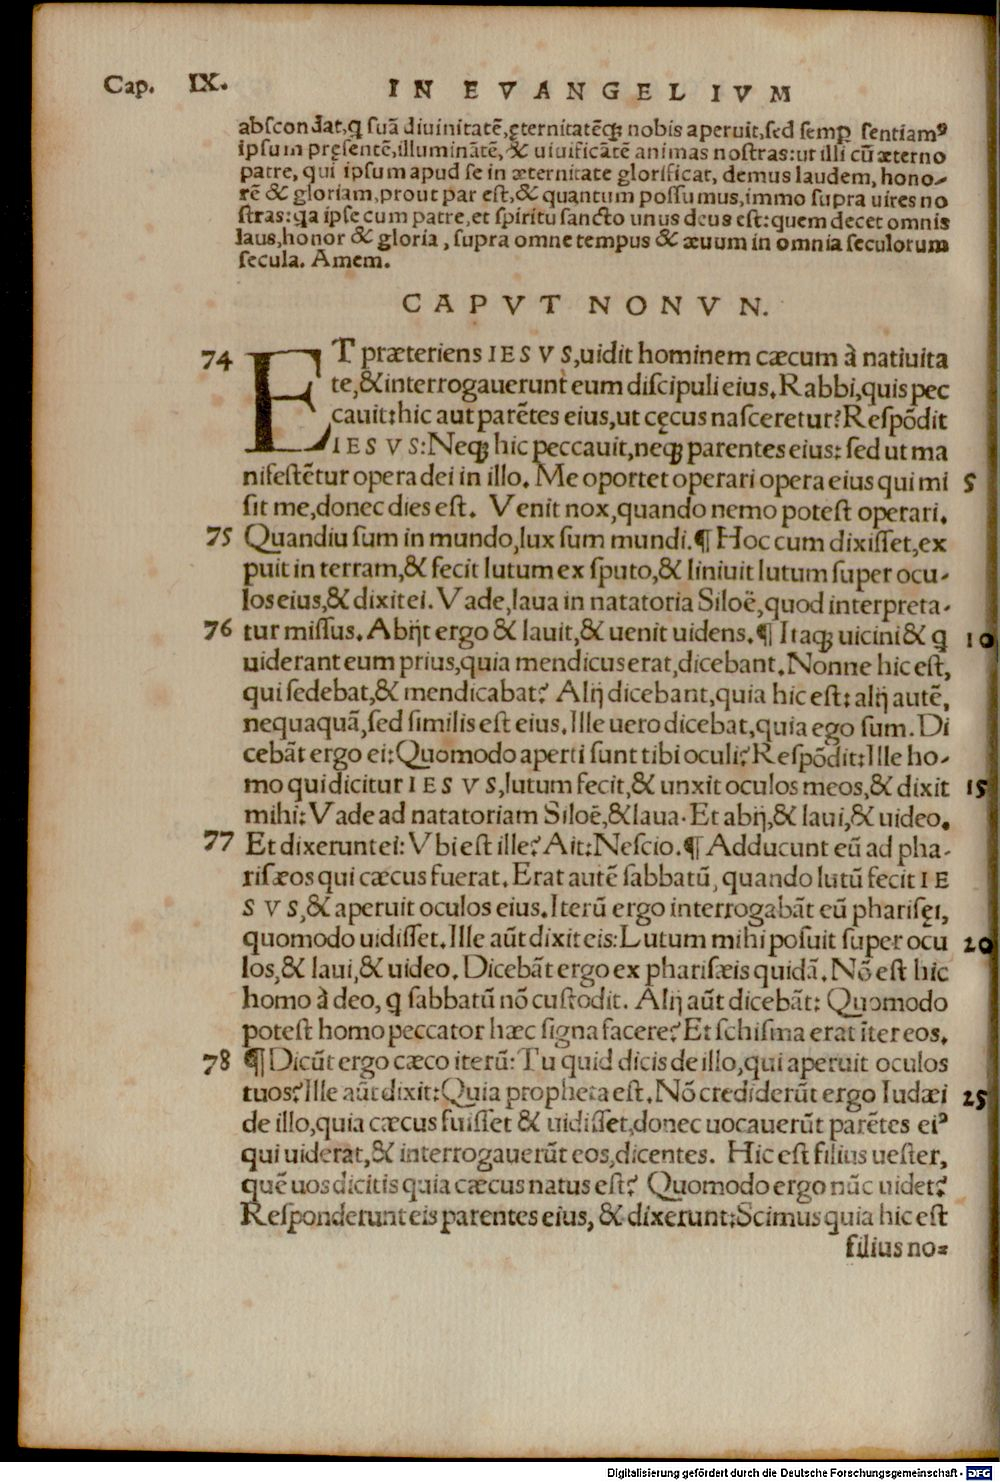 Cap. IX. IN EVANGELIVM
abscondat,ꝗ suā diuinitatē,ęternitatēq; nobis aperuit,sed semꝑ sentiamꝰ
ipsum pręsentē,illuminātē, & uiuificātē animas nostras:ut illi cū æterno
patre, qui ipsum apud se in æternitate glorificat, demus laudem, hono-
rē & gloriam,prout par est,& quantum possumus,immo supra uires no
stras:ꝗa ipse cum patre,et spiritu sancto unus deus est:quem decet omnis
laus,honor & gloria, supra omne tempus & æuum in omnia seculorum
secula. Amem.
CAPVT NONVN.
74 ET præteriens IESVS,uidit hominem cæcum à natiuita
te,& interrogauerunt eum discipuli eius.Rabbi,quis pec
cauit:hic aut parētes eius,ut cęcus nasceretur?Respōdit
IESVS:Neq; hic peccauit,neq; parentes eius: sed ut ma
nifestētur opera dei in illo. Me oportet operari opera eius qui mi 5
sit me,donec dies est. Venit nox,quando nemo potest operari.
75 Quandiu sum in mundo,lux sum mundi.¶ Hoc cum dixisset,ex
puit in terram,& fecit lutum ex sputo,& liniuit lutum super ocu-
los eius,& dixit ei. Vade,laua in natatoria Siloë,quod interpreta-
76 tur missus. Abijt ergo & lauit,& uenit uidens.¶ Itaq; uicini & ꝗ 10
uiderant eum prius,quia mendicus erat,dicebant.Nonne hic est,
qui sedebat,& mendicabat? Alij dicebant,quia hic est: alij autē,
nequaquā,sed similis est eius.Ille uero dicebat,quia ego sum. Di
cebāt ergo ei:Quomodo aperti sunt tibi oculi?Respōdit:Ille ho-
mo qui dicitur IESVS,lutum fecit,& unxit oculos meos,& dixit 15
mihi:Vade ad natatoriam Siloē,& laua.Et abij,& laui,& uideo.
77 Et dixerunt ei: Vbi est ille?Ait:Nescio.¶ Adducunt eū ad pha-
risæos qui cæcus fuerat.Erat autē sabbatū, quando lutū fecit IE
SVS,& aperuit oculos eius.Iterū ergo interrogabāt eū pharisęi,
quomodo uidisset.Ille aūt dixit eis:Lutum mihi posuit super ocu 20
los,& laui,& uideo.Dicebāt ergo ex pharisæis quidā.Nō est hic
homo à deo, ꝗ sabbatū nō custodit. Alij aūt dicebāt: Quomodo
potest homo peccator hæc signa facere?Et schisma erat īter eos.
78 ¶ Dicūt ergo cæco iterū: Tu quid dicis de illo,qui aperuit oculos
tuos?Ille aūt dixit:Quia propheta est.Nō crediderūt ergo Iudæi 25
de illo,quia cæcus fuisset & uidisset,donec uocauerūt parētes eiꝰ
qui uiderat,& interrogauerūt eos,dicentes. Hic est filius uester,
quē uos dicitis quia cæcus natus est? Quomodo ergo nūc uidet?
Responderunt eis parentes eius, & dixerunt:Scimus quia hic est
filius no=
Digitalisierung gefördert durch die Deutsche Forschungsgemeinschaft - DFG